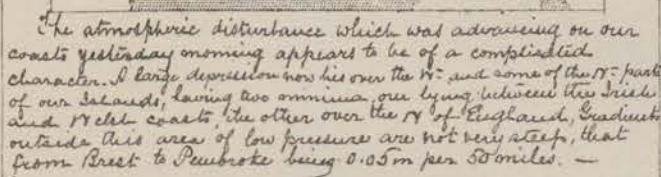 The atmospheric disturbance which was advancing on our
coasts yesterday morning appears to be of a complicated
character. A large depression now lies over the Wn. and some of the Nn. parts
of our Islands, having two minima, one lying between the Irish
and Welsh coasts, the other over the N of England, Gradients
outside this area of low pressure are not very steep, that
from Brest to Pembroke being 0.05 in per 50 miles. —